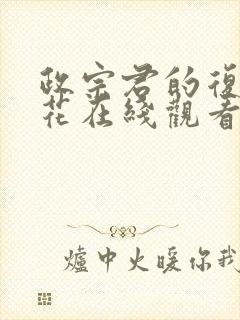 政宗君的復
花在綫觀看
爐中火暖你我